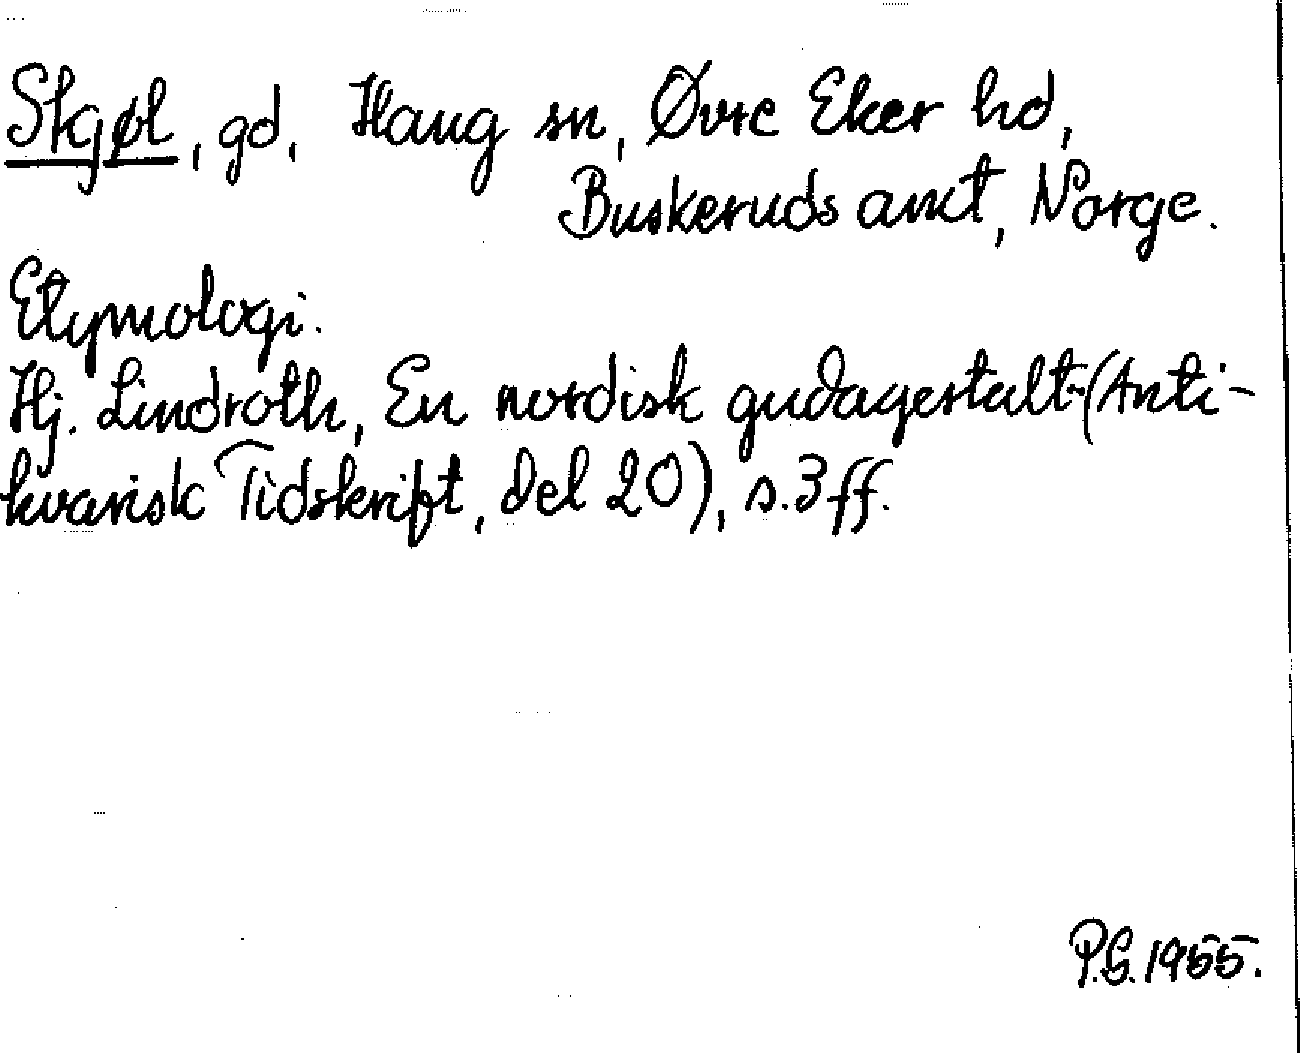 Skjøl, gd, Haug sn, Øvre Eker hd,
Buskeruds amt, Norge.
Etymologi.
Hj. Lindroth, En nordisk gudagestalt (Anti-
kvarisk Tidskrift, del 20), s. 3 ff.
P.G. 1955.